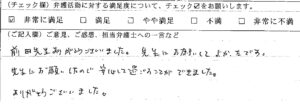 (チェック欄) 弁護活動に対する満足度について、チェック☑をお願いします。
☑ 非常に満足 □ 満足 □ やや満足 □ 不満 □ 非常に不満
(ご記入欄) ご意見、ご感想、担当弁護士への一言など
前田先生ありがとうございました。先生にお願いしてよかったです。
先生にお願いしたので安心して過ごすことができました。
ありがとうございました。